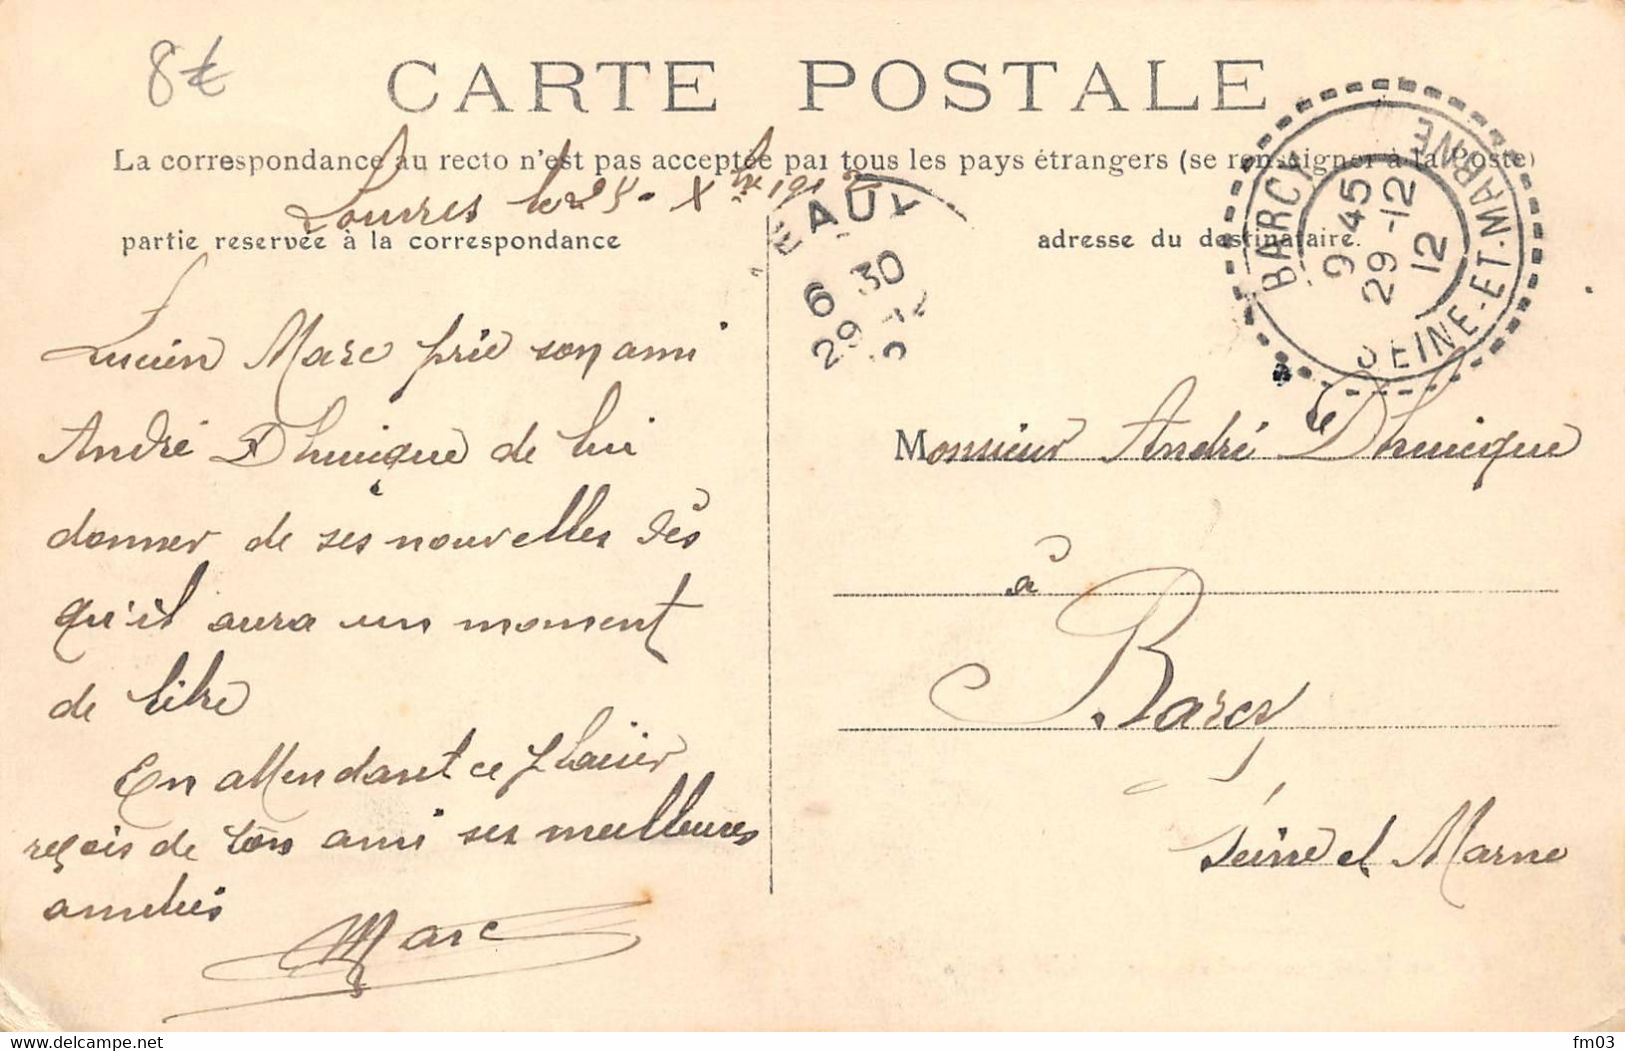 8€
CARTE POSTALE
La correspondance au recto n'est pas acceptée par tous les pays étrangers (se renseigner à la Poste)
Louvres le 28 - Xbre 1912
partie reservée à la correspondance
adresse du destinataire.
EAUX
6 30
29 12
BARCY
9 45
29 -12
12
SEINE-ET-MARNE
Lucien Marc prie son ami
André Dhuicque de lui
donner de ses nouvelles dès
qu'il aura un moment
de libre
En attendant ce plaisir
reçois de ton ami ses meilleures
amitiés
Marc
Monsieur André Dhuicque
à
Barcy
Seine et Marne
delcampe.net
fm03